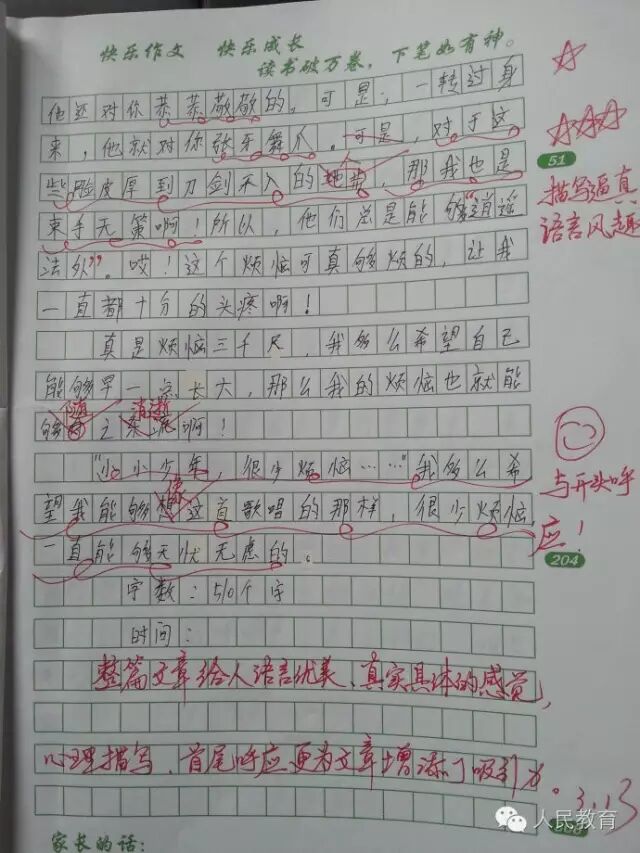 快乐作文 快乐成长
读书破万卷，下笔如有神。
他还对你恭恭敬敬的，可是，一转过身
来，他就对你张牙舞爪。可是，对于这
51
些脸皮厚到刀剑不入的
人
，那我也是
描写逼真
语言风趣
束手无策啊！所以，他们总是能够“逍遥
法外”。哎！这个烦恼可真够烦的，让我
一直都十分的头疼啊！
真是烦恼三千尺，我多么希望自己
能够早一点长大，那么我的烦恼也就能
随 消逝
够 之 啊！
“小小少年，很少烦恼……”我多么希
像
望我能够想这首歌唱的那样，很少烦恼，
与开头呼
应！
一直能够无忧无虑的。
204
字数：510个字
时间：
整篇文章给人语言优美、真实具体的感觉，
心理描写、首尾呼应更为文章增添了吸引力。3.13
人民教育
家长的话：